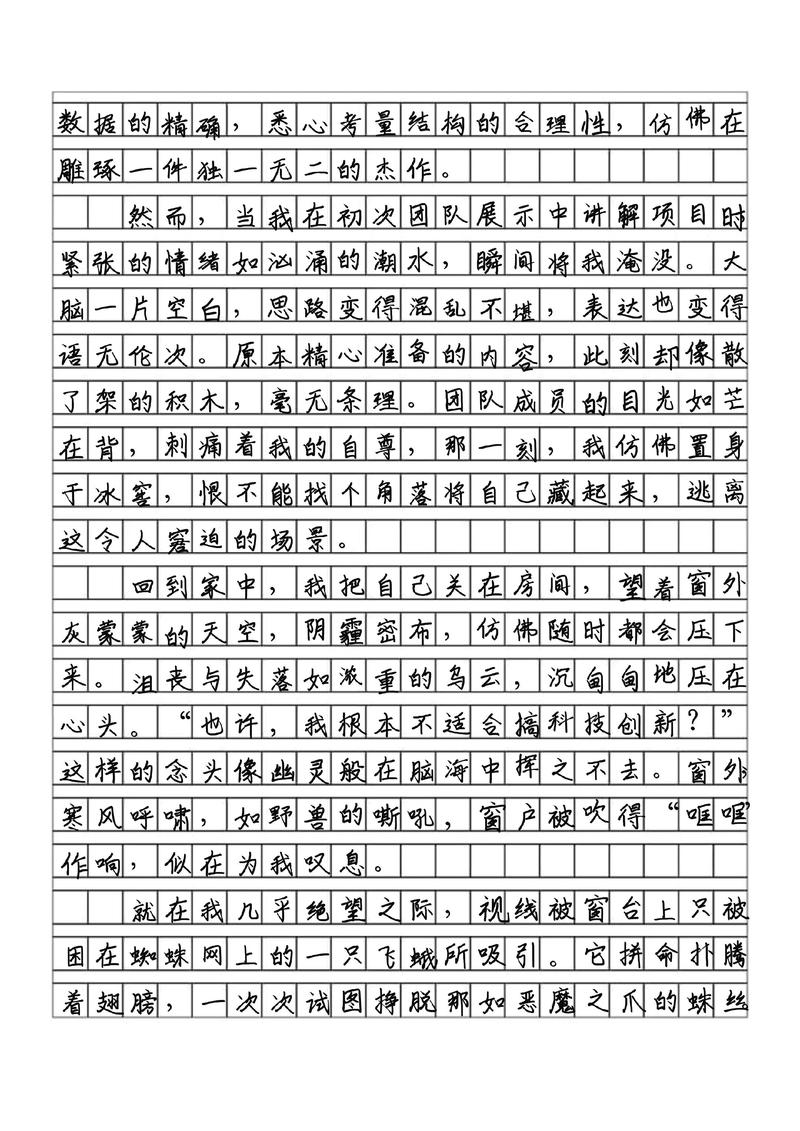 数据的精确，悉心考量结构的合理性，仿佛在
雕琢一件独一无二的杰作。
然而，当我在初次团队展示中讲解项目时
紧张的情绪如汹涌的潮水，瞬间将我淹没。大
脑一片空白，思路变得混乱不堪，表达也变得
语无伦次。原本精心准备的内容，此刻却像散
了架的积木，毫无条理。团队成员的目光如芒
在背，刺痛着我的自尊，那一刻，我仿佛置身
于冰窖，恨不能找个角落将自己藏起来，逃离
这令人窘迫的场景。
回到家中，我把自己关在房间，望着窗外
灰蒙蒙的天空，阴霾密布，仿佛随时都会压下
来。沮丧与失落如浓重的乌云，沉甸甸地压在
心头。“也许，我根本不适合搞科技创新？”
这样的念头像幽灵般在脑海中挥之不去。窗外
寒风呼啸，如野兽的嘶吼，窗户被吹得“哐哐”
作响，似在为我叹息。
就在我几乎绝望之际，视线被窗台上只被
困在蜘蛛网上的一只飞蛾所吸引。它拼命扑腾
着翅膀，一次次试图挣脱那如恶魔之爪的蛛丝